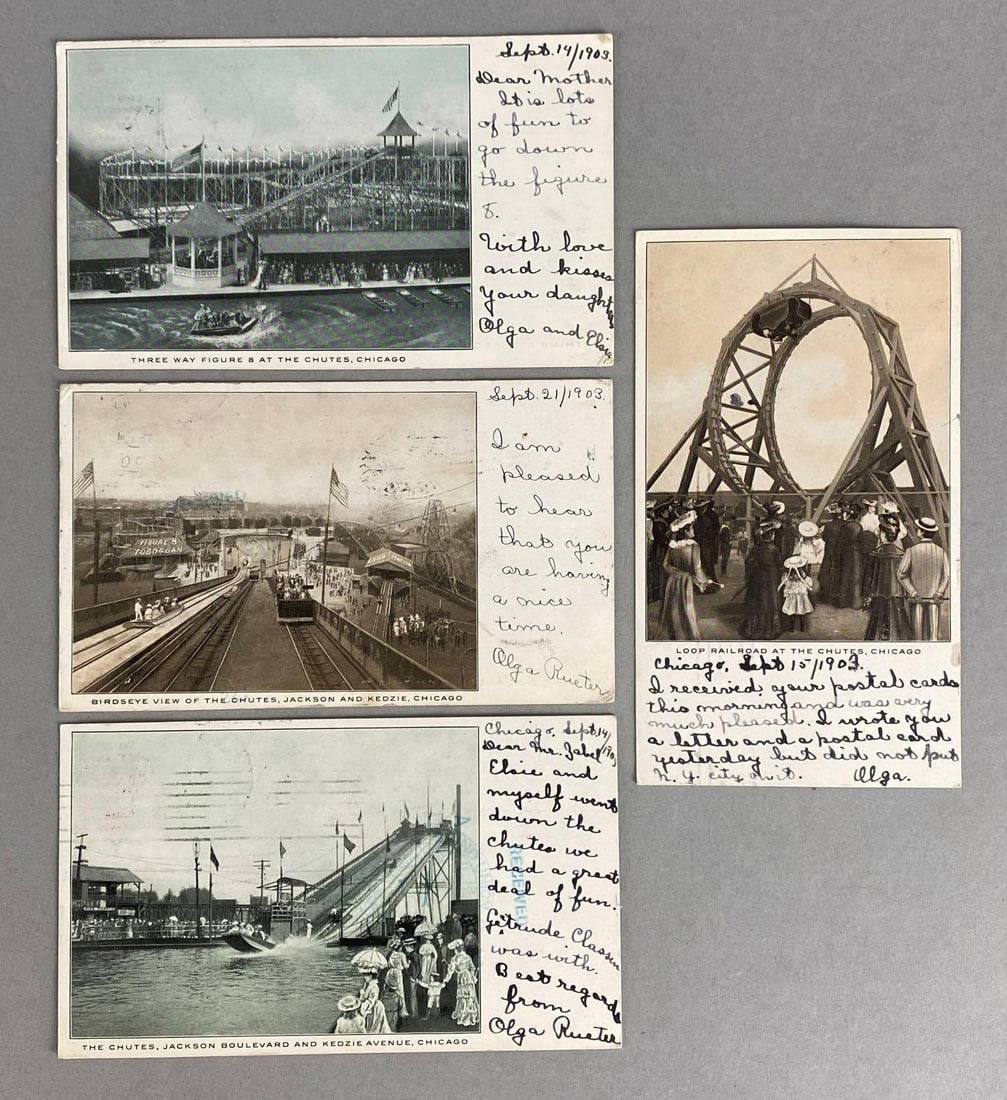 Sept. 14/1903.
Dear Mother
It is lots
of fun to
go down
the figure
8.
With love
and kisses
Your daughters
Olga and Elsie
THREE WAY FIGURE 8 AT THE CHUTES, CHICAGO
Sept. 21/1903.
I am
pleased
to hear
that you
are having
a nice
time.
Olga Rueter
FIGURE 8
TOBOGGAN
BIRDSEYE VIEW OF THE CHUTES, JACKSON AND KEDZIE, CHICAGO
Chicago, Sept. 14/
Dear Mr. Zabel
Elsie and
myself went
down the
chutes we
had a great
deal of fun.
Getrude Classen
was with.
Best regards
from
Olga Rueter
RECEIVED
THE CHUTES, JACKSON BOULEVARD AND KEDZIE AVENUE, CHICAGO
LOOP RAILROAD AT THE CHUTES, CHICAGO
Chicago, Sept 15/1903.
I received your postal cards
this morning and was very
much pleased. I wrote you
a letter and a postal card
yesterday but did not put
N. Y. city on it. Olga.